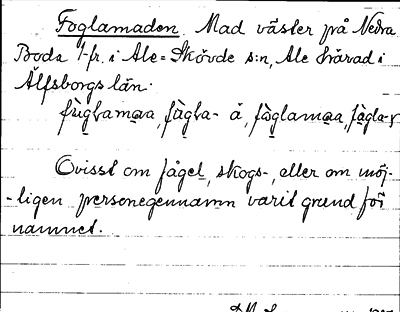 Foglamaden. Mad väster på Nedra
Boda 1 fr. i Ale-Skövde s:n, Ale härad i
Älfsborgs län.
fùglamaa, fùgla- å, fòglamaa,
Ovisst om fågel, skogs-, eller om möj-
-ligen personegennamn varit grund för
namnet.